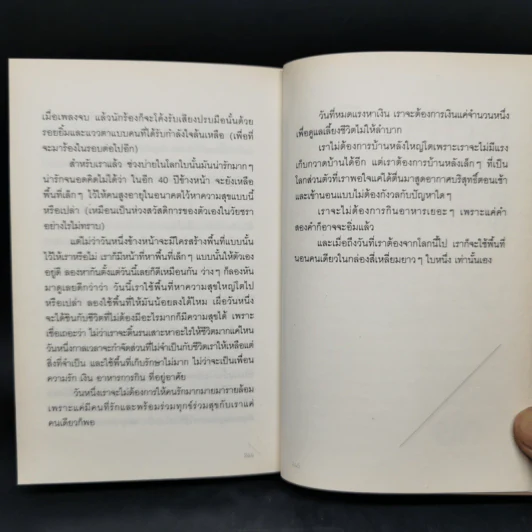 เมื่อเพลงจบ แล้วนักร้องก็จะโค้งรับเสียงปรบมือนั้นด้วย
รอยยิ้มและแววตาแบบคนที่ได้รับกำลังใจล้นเหลือ (เพื่อที่
จะมาร้องในรอบต่อไปอีก)
สำหรับเราแล้ว ช่วงบ่ายในโลกใบนั้นมันน่ารักมากๆ
น่ารักจนอดคิดไม่ได้ว่า ในอีก 40 ปีข้างหน้า จะยังเหลือ
พื้นที่เล็กๆ ไว้ให้คนสูงอายุในอนาคตไว้หาความสุขแบบนี้
หรือเปล่า (เหมือนเป็นห่วงสวัสดิการของตัวเองในวัยชรา
อย่างไรไม่ทราบ)
แต่ไม่ว่าวันหนึ่งข้างหน้าจะมีใครสร้างพื้นที่แบบนั้น
ไว้ให้เราหรือไม่ เราก็มีหน้าที่หาพื้นที่เล็กๆ แบบนั้นให้ตัวเอง
อยู่ดี ลองหากันตั้งแต่วันนี้เลยก็ดีเหมือนกัน ว่างๆ ก็ลองหัน
มาดูเลยดีกว่าว่า วันนี้เราใช้พื้นที่หาความสุขใหญ่โตไป
หรือเปล่า ลองใช้พื้นที่ให้มันน้อยลงได้ไหม เผื่อวันหนึ่ง
จะได้ชินกับชีวิตที่ไม่ต้องมีอะไรมากก็มีความสุขได้ เพราะ
เชื่อเถอะว่า ไม่ว่าเราจะดิ้นรนเสาะหาอะไรให้ชีวิตมากแค่ไหน
วันหนึ่งกาลเวลาจะกำจัดส่วนที่ไม่จำเป็นกับชีวิตเราให้เหลือแต่
สิ่งที่จำเป็น และใช้พื้นที่เก็บรักษาไม่มาก ไม่ว่าจะเป็นเพื่อน
ความรัก เงิน อาหารการกิน ที่อยู่อาศัย
วันหนึ่งเราจะไม่ต้องการให้คนรักมากมายมารายล้อม
เพราะแค่มีคนที่รักและพร้อมร่วมทุกข์ร่วมสุขกับเราแค่
คนเดียวก็พอ
วันที่หมดแรงหาเงิน เราจะต้องการเงินแค่จำนวนหนึ่ง
เพื่อดูแลเลี้ยงชีวิตไม่ให้ลำบาก
เราไม่ต้องการบ้านหลังใหญ่โตเพราะเราจะไม่มีแรง
เก็บกวาดบ้านได้อีก แต่เราต้องการบ้านหลังเล็กๆ ที่เป็น
โลกส่วนตัวที่เราพอใจแค่ได้ตื่นมาสูดอากาศบริสุทธิ์ตอนเช้า
และเข้านอนแบบไม่ต้องกังวลกับปัญหาใดๆ
เราจะไม่ต้องการกินอาหารเยอะๆ เพราะแค่คำ
สองคำก็อาจจะอิ่มแล้ว
และเมื่อถึงวันที่เราต้องจากโลกนี้ไป เราก็จะใช้พื้นที่
นอนคนเดียวในกล่องสี่เหลี่ยมยาวๆ ใบหนึ่ง เท่านั้นเอง